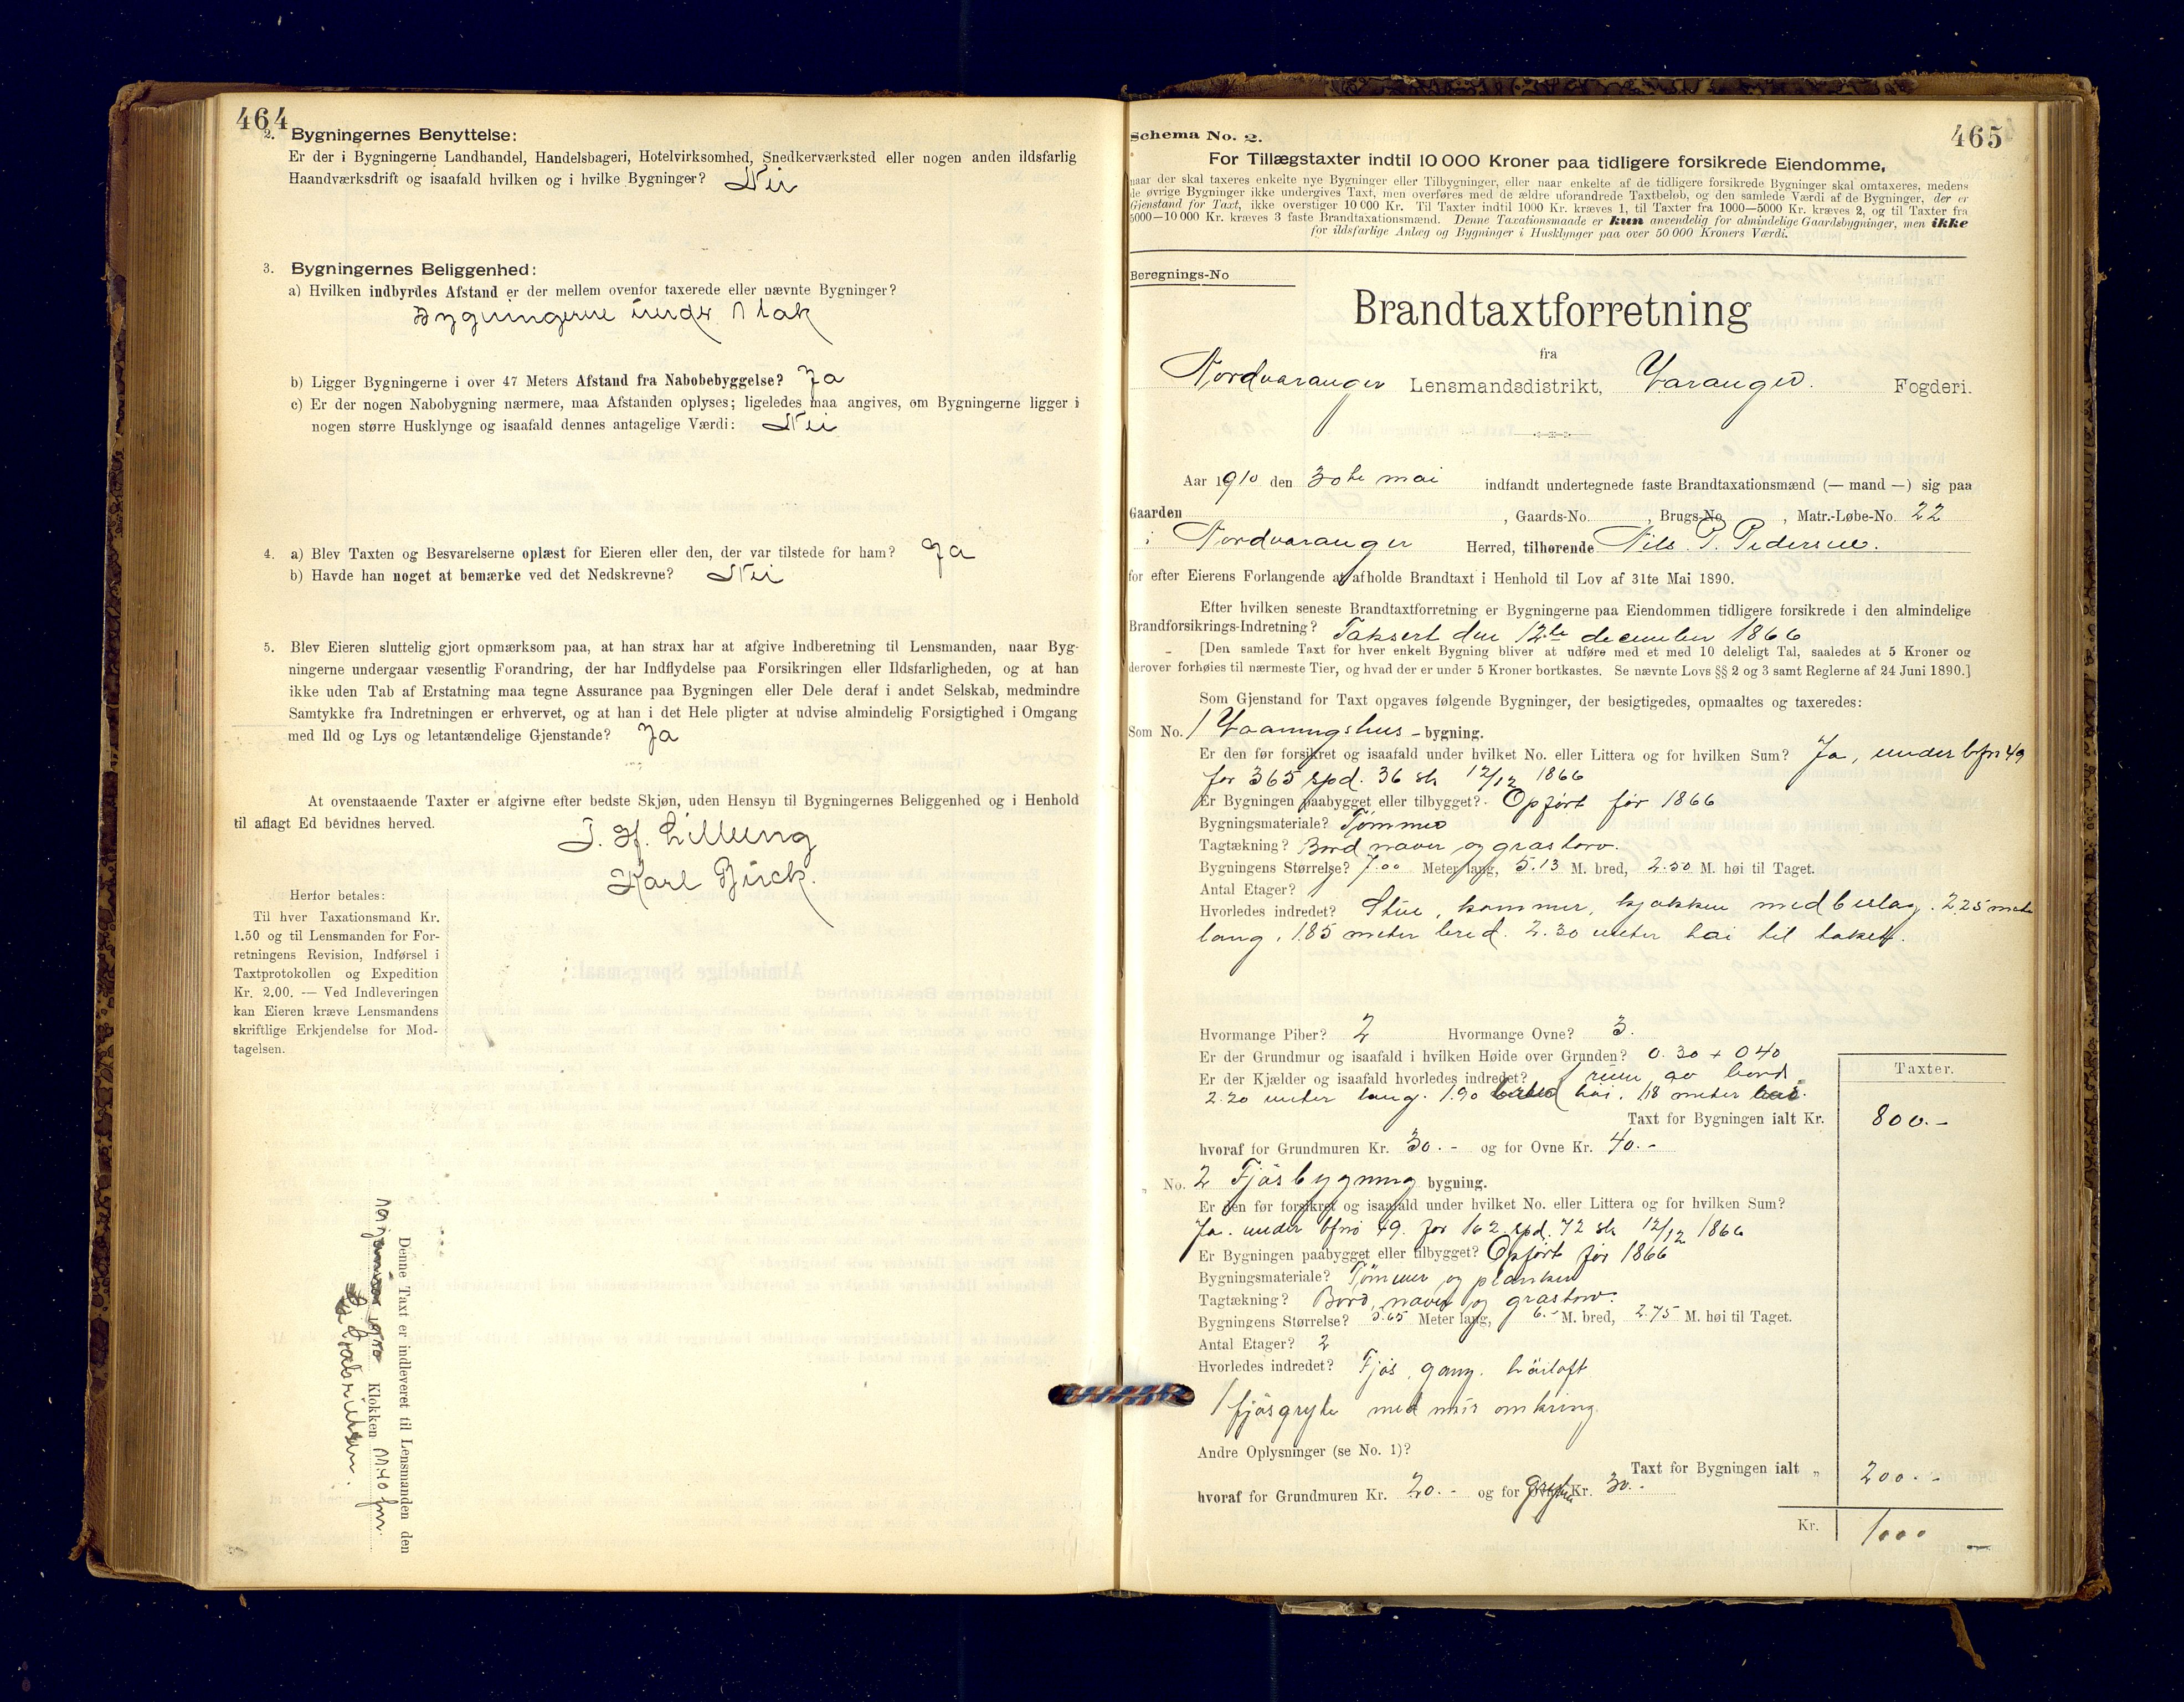 464
2. Bygningernes Benyttelse:
Er der i Bygningerne Landhandel, Handelsbageri, Hotelvirksomhed, Snedkerværksted eller nogen anden ildsfarlig
Haandværksdrift og isaafald hvilken og i hvilke Bygninger? Nei
3. Bygningernes Beliggenhed:
a) Hvilken indbyrdes Afstand er der mellem ovenfor taxerede eller nævnte Bygninger?
Bygningerne under 1 tak
b) Ligger Bygningerne i over 47 Meters Afstand fra Nabobebyggelse? Ja
c) Er der nogen Nabobygning nærmere, maa Afstanden oplyses; ligeledes maa angives, om Bygningerne ligger i
nogen større Husklynge og isaafald dennes antagelige Værdi: Nei
4. a) Blev Taxten og Besvarelserne oplæst for Eieren eller den, der var tilstede for ham? Ja
b) Havde han noget at bemærke ved det Nedskrevne? Nei
5. Blev Eieren sluttelig gjort opmærksom paa, at han strax har at afgive Indberetning til Lensmanden, naar Byg-
ningerne undergaar væsentlig Forandring, der har Indflydelse paa Forsikringen eller Ildsfarligheden, og at han
ikke uden Tab af Erstatning maa tegne Assurance paa Bygningen eller Dele deraf i andet Selskab, medmindre
Samtykke fra Indretningen er erhvervet, og at han i det Hele pligter at udvise almindelig Forsigtighed i Omgang
med Ild og Lys og letantændelige Gjenstande? Ja
At ovenstaaende Taxter er afgivne efter bedste Skjøn, uden Hensyn til Bygningernes Beliggenhed og i Henhold
til aflagt Ed bevidnes herved.
J. H. Lilleeng
Karl Birck.
Herfor betales:
Til hver Taxationsmand Kr.
1.50 og til Lensmanden for For-
retningens Revision, Indførsel i
Taxtprotokollen og Expedition
Kr. 2.00. — Ved Indleveringen
kan Eieren kræve Lensmandens
skriftlige Erkjendelse for Mod-
tagelsen.
Denne Taxt er indleveret til Lensmanden den
1910 Klokken 11.40 fm.
Schema No. 2.
465
For Tillægstaxter indtil 10 000 Kroner paa tidligere forsikrede Eiendomme,
naar der skal taxeres enkelte nye Bygninger eller Tilbygninger, eller naar enkelte af de tidligere forsikrede Bygninger skal omtaxeres, medens
de øvrige Bygninger ikke undergives Taxt, men overføres med de ældre uforandrede Taxtbeløb, og den samlede Værdi af de Bygninger, der er
Gjenstand for Taxt, ikke overstiger 10 000 Kr. Til Taxter indtil 1000 Kr. kræves 1, til Taxter fra 1000—5000 Kr. kræves 2, og til Taxter fra
5000—10 000 Kr. kræves 3 faste Brandtaxationsmænd. Denne Taxationsmaade er kun anvendelig for almindelige Gaardsbygninger, men ikke
for ildsfarlige Anlæg og Bygninger i Husklynger paa over 50 000 Kroners Værdi.
Beregnings-No
Brandtaxtforretning
fra
Nordvaranger Lensmandsdistrikt, Varanger. Fogderi.
Aar 1910 den 30te mai indfandt undertegnede faste Brandtaxationsmænd (— mand —) sig paa
Gaarden , Gaards-No. , Brugs-No , Matr.-Løbe-No. 22
i Nordvaranger Herred, tilhørende Nils P. Pedersen.
for efter Eierens Forlangende at afholde Brandtaxt i Henhold til Lov af 31te Mai 1890.
Efter hvilken seneste Brandtaxtforretning er Bygningerne paa Eiendommen tidligere forsikrede i den almindelige
Brandforsikrings-Indretning? Taksert den 12te december 1866
[Den samlede Taxt for hver enkelt Bygning bliver at udføre med et med 10 deleligt Tal, saaledes at 5 Kroner og
derover forhøies til nærmeste Tier, og hvad der er under 5 Kroner bortkastes. Se nævnte Lovs §§ 2 og 3 samt Reglerne af 24 Juni 1890.]
Som Gjenstand for Taxt opgaves følgende Bygninger, der besigtigedes, opmaaltes og taxeredes:
Som No. 1 Vaaningshus - bygning.
Er den før forsikret og isaafald under hvilket No. eller Littera og for hvilken Sum? Ja, under bfn 49
for 365 spd. 36 sk 12/12 1866
Er Bygningen paabygget eller tilbygget? Opført før 1866
Bygningsmateriale? Tømmer
Tagtækning? Bord næver og grastorv.
Bygningens Størrelse? 7.00 Meter lang, 5.13 M. bred, 2.50 M. høi til Taget.
Antal Etager?
Hvorledes indredet? Stue, kammer, kjøkken med beslag. 2,25 meter
lang, 1.85 meter bred. 2.30 meter høi til taket.
Hvormange Piber? 2 Hvormange Ovne? 3.
Er der Grundmur og isaafald i hvilken Høide over Grunden? 0.30 + 0.40
Er der Kjælder og isaafald hvorledes indredet? 1 rum av bord
2.20 meter lang. 1.90 høi. 1,18 meter
Taxter.
Taxt for Bygningen ialt Kr. 800.-
hvoraf for Grundmuren Kr. 30.- og for Ovne Kr. 40.-
„ No. 2 Fjøsbygning bygning.
Er den før forsikret og isaafald under hvilket No. eller Littera og for hvilken Sum?
Ja. under bfno 49. for 162 spd. 72 sk 12/12 1866
Er Bygningen paabygget eller tilbygget? Opført før 1866
Bygningsmateriale? Tømmer og planker
Tagtækning? Bord, næver og grastorv.
Bygningens Størrelse? 5.65 Meter lang, 6.- M. bred, 2.75 M. høi til Taget.
Antal Etager? 2
Hvorledes indredet? Fjøs, gang. høiloft
1 fjøsgryte med mur omkring.
Andre Oplysninger (se No. 1)?
Taxt for Bygningen ialt „ 200.-
hvoraf for Grundmuren Kr. 20.- og for Gryten Kr. 30.-
Kr. 1000